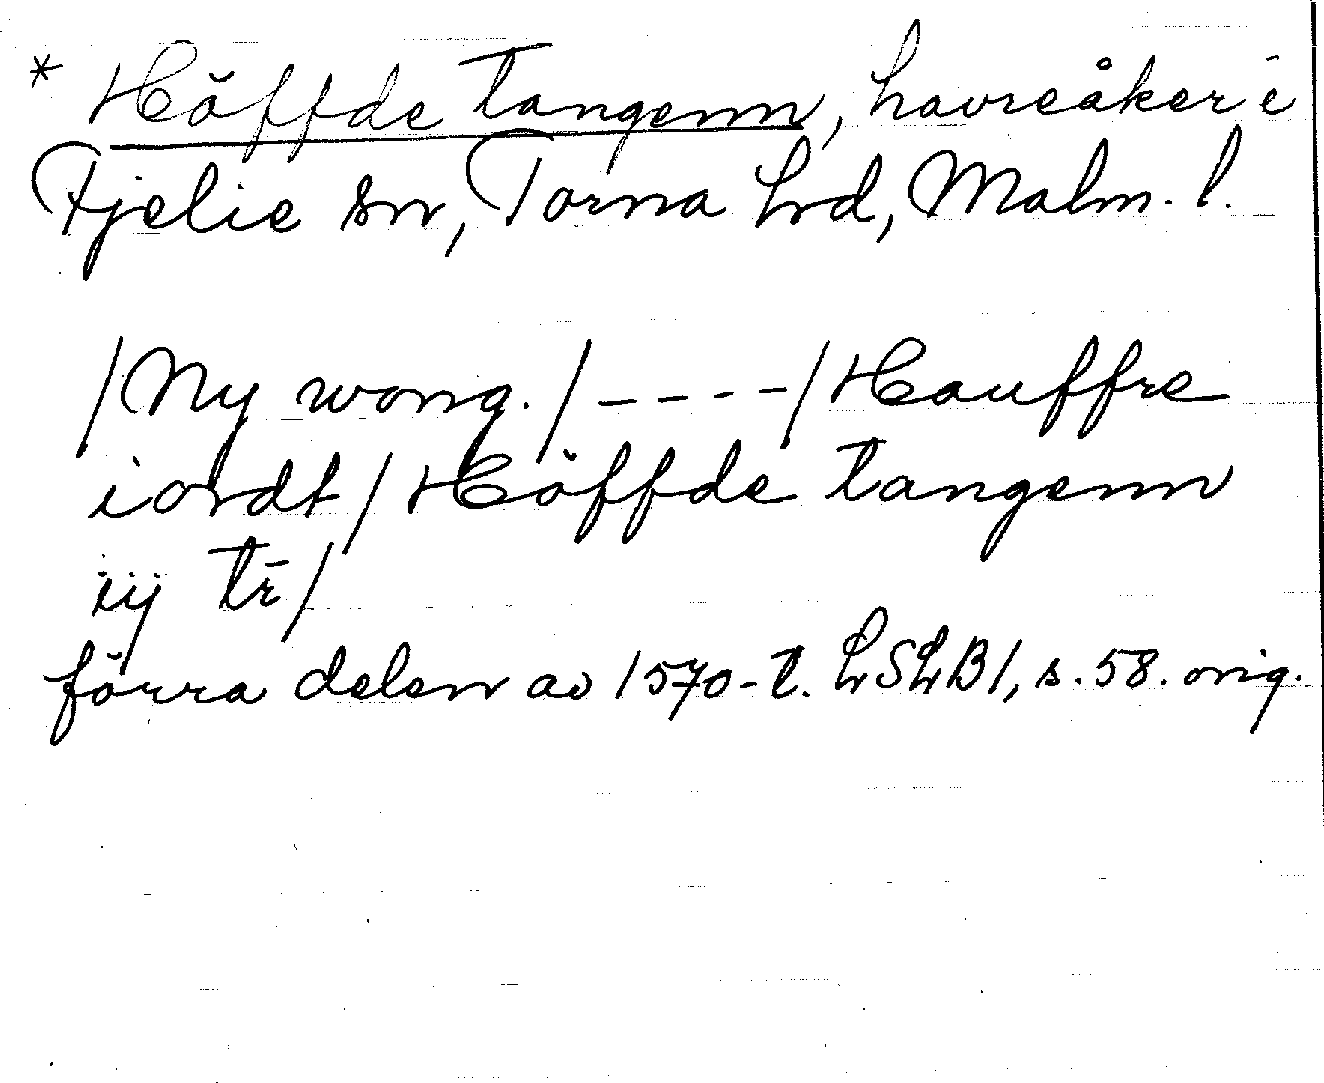 * Höffde tangenn, havreåker i
Fjelie sn, Torna hrd, Malm. l.
/Ny wong./----/Hauffre
iordt/Höffde tangenn
iij tr̄/
förra delen av 1570-t. LSLB1, s.58. orig.